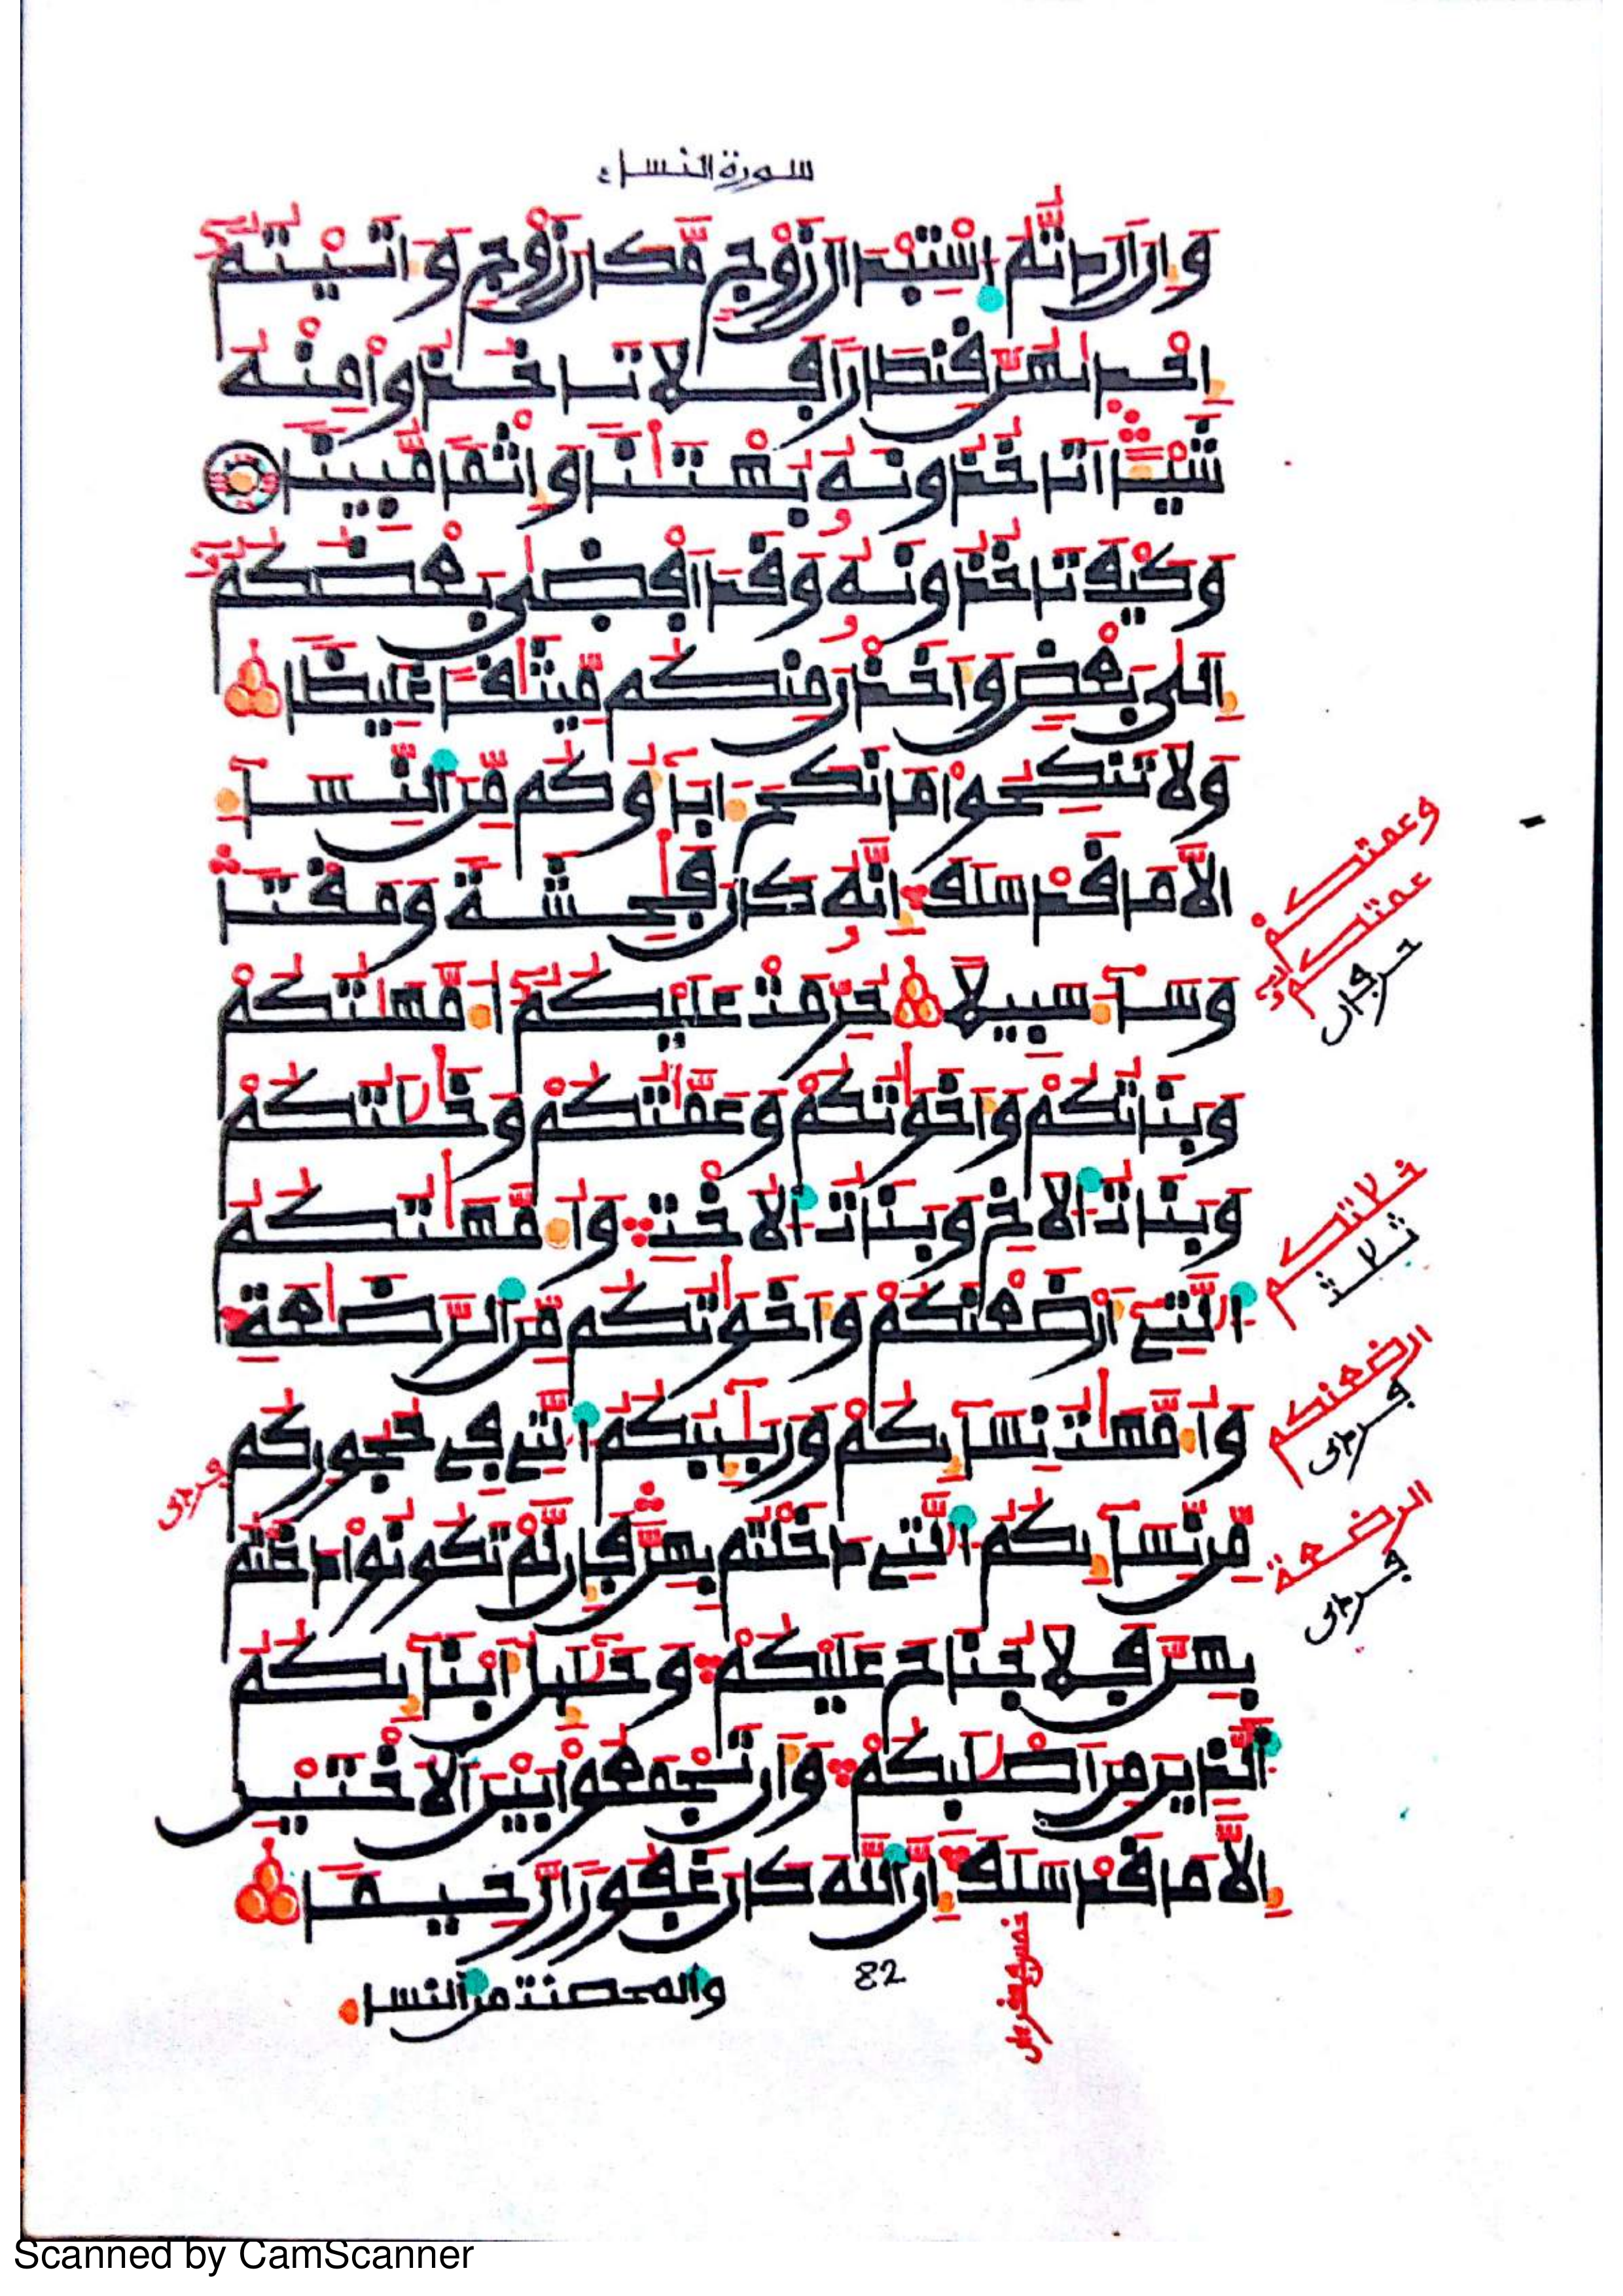 سورة النساء
وَإِنْ أَرَدتُّمُ اسْتِبْدَالَ زَوْجٍ مَّكَانَ زَوْجٍ وَءَاتَيْتُمُ
إِحْدَىٰهُنَّ قِنطَارًا فَلَا تَاخُذُوا مِنْهُ
شَيْـًٔا اَتَاخُذُونَهُ بُهْتَٰنًا وَإِثْمًا مُّبِينًا
وَكَيْفَ تَاخُذُونَهُ وَقَدَ اَفْضَىٰ بَعْضُكُمُ
إِلَىٰ بَعْضٍ وَأَخَذْنَ مِنكُم مِّيثَٰقًا غَلِيظًا
وَلَا تَنكِحُوا مَا نَكَحَ ءَابَآؤُكُم مِّنَ النِّسَآءِ
اِلَّا مَا قَدْ سَلَفَ إِنَّهُ كَانَ فَٰحِشَةً وَمَقْتًا
وَسَآءَ سَبِيلًا حُرِّمَتْ عَلَيْكُمُ أُمَّهَٰتُكُمْ
وَبَنَاتُكُمْ وَأَخَوَٰتُكُمْ وَعَمَّٰتُكُمْ وَخَٰلَٰتُكُمْ
وَبَنَاتُ الْأَخِ وَبَنَاتُ الْأُخْتِ وَأُمَّهَٰتُكُمُ
الَّٰتِي أَرْضَعْنَكُمْ وَأَخَوَٰتُكُم مِّنَ الرَّضَٰعَةِ
وَأُمَّهَٰتُ نِسَآئِكُمْ وَرَبَٰٓئِبُكُمُ الَّٰتِي فِي حُجُورِكُم
مِّن نِّسَآئِكُمُ الَّٰتِي دَخَلْتُم بِهِنَّ فَإِن لَّمْ تَكُونُوا دَخَلْتُم
بِهِنَّ فَلَا جُنَاحَ عَلَيْكُمْ وَحَلَٰٓئِلُ أَبْنَآئِكُمُ
الَّذِينَ مِنَ اَصْلَٰبِكُمْ وَأَن تَجْمَعُوا بَيْنَ الْأُخْتَيْنِ
إِلَّا مَا قَدْ سَلَفَ إِنَّ اللَّهَ كَانَ غَفُورًا رَّحِيمًا
82
والمحصنت من النساء
وعمتكم
عمتكم
حرفان
خلاتكم
ثلاثة
ارضعنكم
الرضعة
Scanned by CamScanner